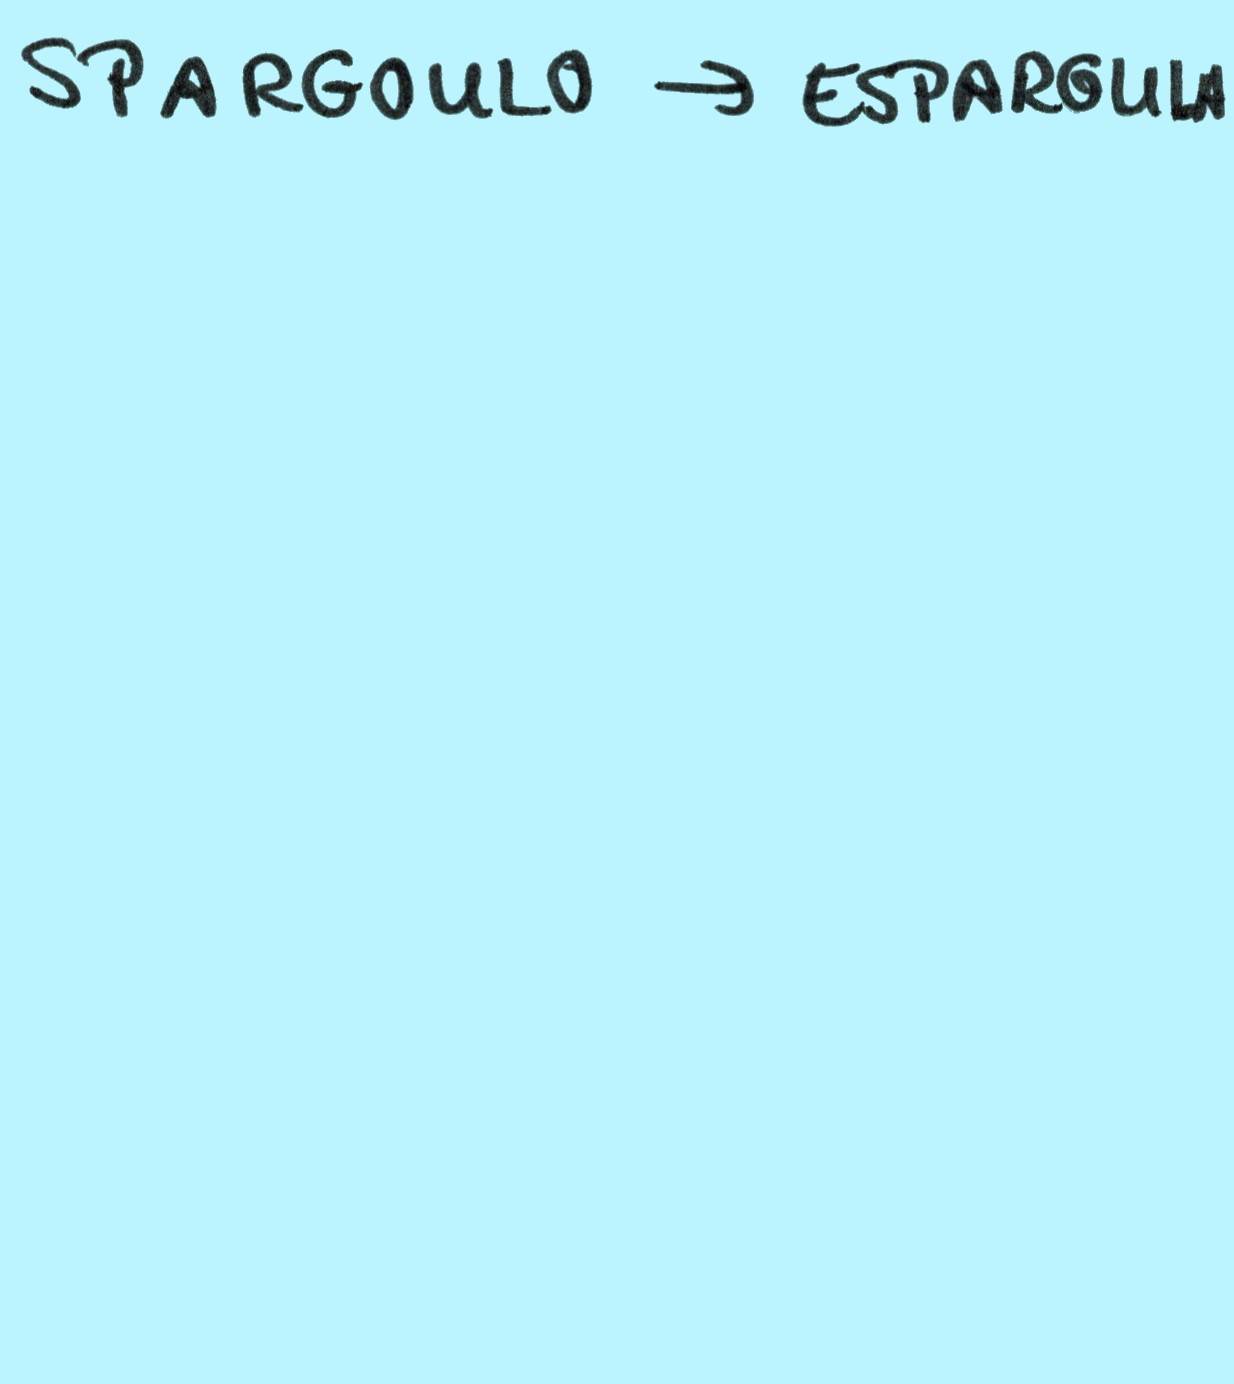 SPARGOULO → ESPARGULA